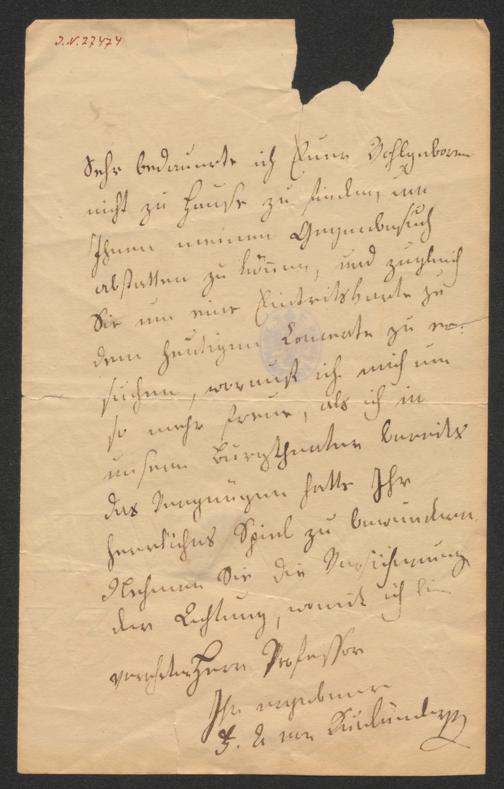 J.N. 27474
Sehr bedauerte ich Euer Wohlgeboren
nicht zu Hause zu finden, um
Ihnen meinen Gegenbesuch
abstatten zu können, und zugleich
Sie um eine Eintrittskarte zu
dem heutigen Concerte zu er-
suchen, worauf ich mich um
so mehr freue, als ich in
unserm Burgtheater bereits
das Vergnügen hatte Ihr
herrliches Spiel zu bewundern.
Nehmen Sie die Versicherung
der Achtung, womit ich bin
verehrter Herr Professor
Ihr ergebener